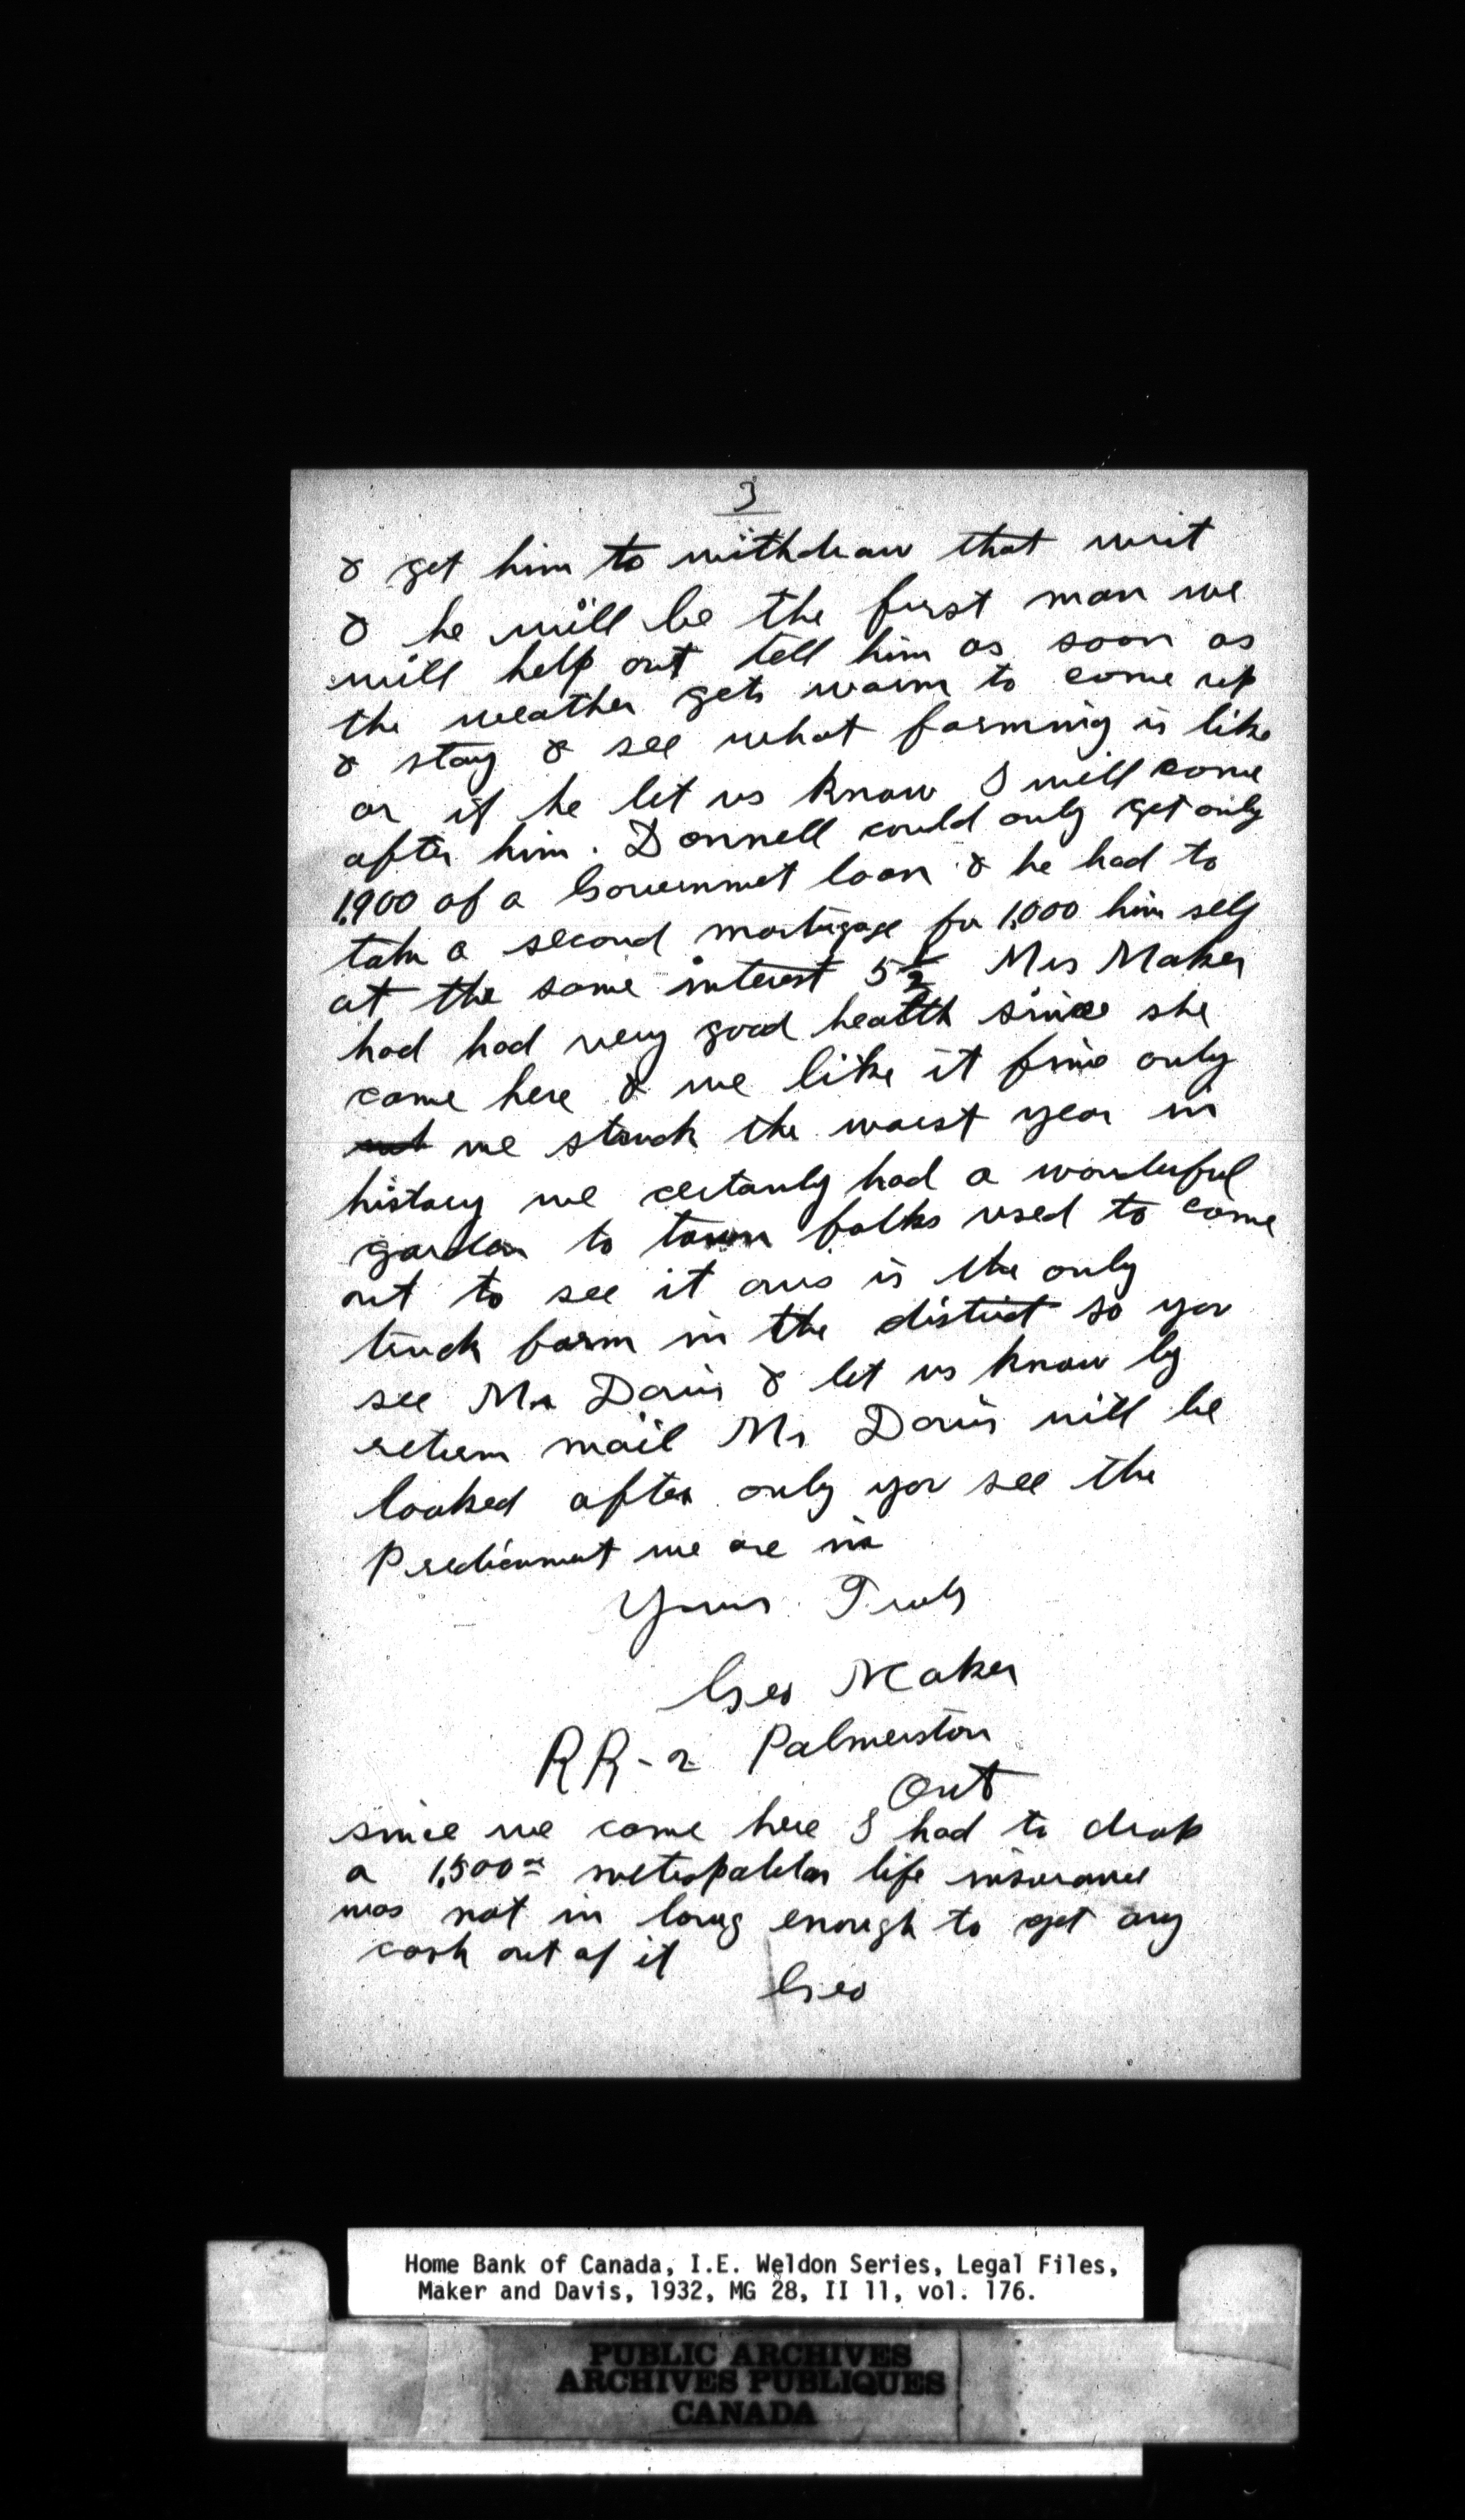 3
& get him to withdraw that writ
& he will be the first man we
will help out tell him as soon as
the weather gets warm to come up
& stay & see what farming is like
or if he let us know I will come
after him. Donnell could only get only
1,900 of a Governmet loan & he had to
take a second mortgage for 1,000 him self
at the same interest 5½ Mrs Maker
had had very good health since she
came here & we like it fine only
we struck the worst year in
history we certanly had a wonderful
garden to town folks used to come
out to see it ours is the only
truck farm in the district so you
see Mr Davis & let us know by
return mail Mr Davis will be
looked after only you see the
Predicament we are in
Yours Truly
Geo Maker
RR-2 Palmerston
Ont
since we come here I had to drop
a 1,500 metropolitan life insurance
was not in long enough to get any
cash out of it
Geo
Home Bank of Canada, I.E. Weldon Series, Legal Files,
Maker and Davis, 1932, MG 28, II 11, vol. 176.
PUBLIC ARCHIVES
ARCHIVES PUBLIQUES
CANADA